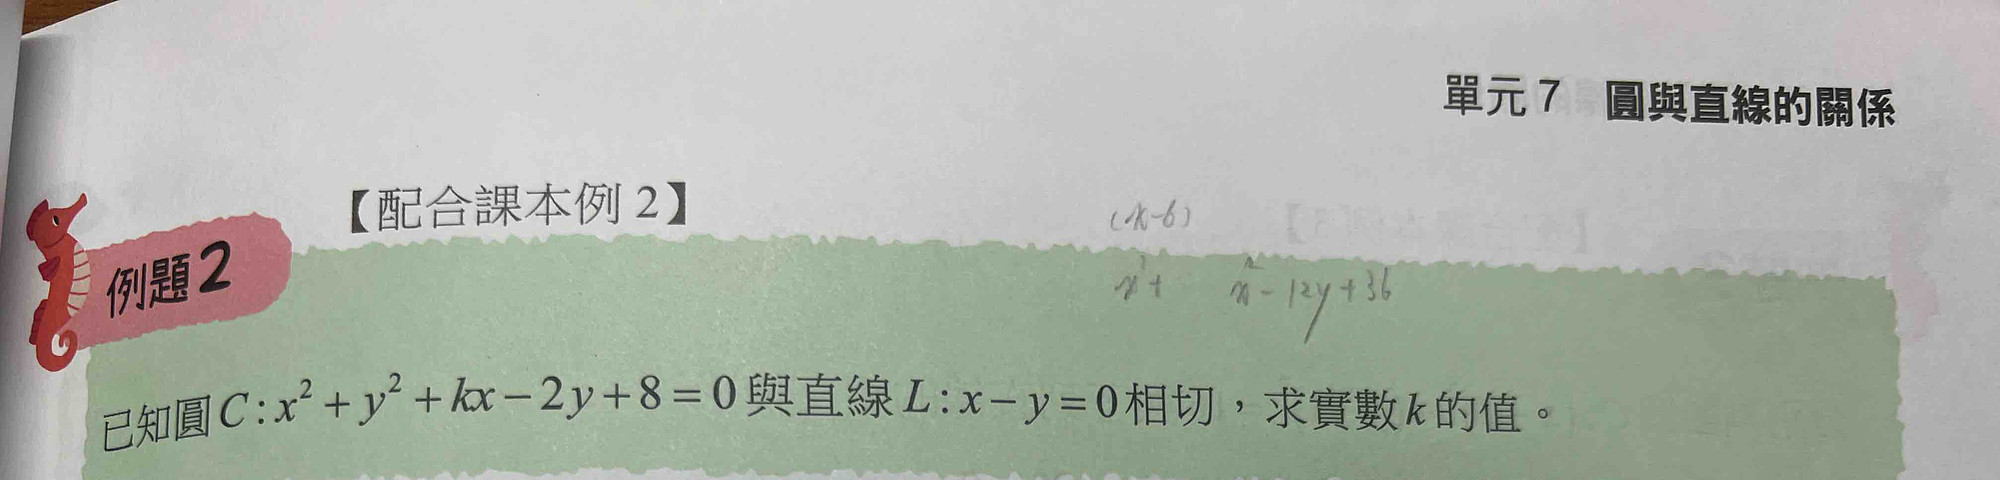 單元 7 圓與直線的關係
【配合課本例 2】
(x-6)
例題2
x²+ x²-12y+36
已知圓C:x²+y²+kx-2y+8=0與直線L:x-y=0相切，求實數k的值。